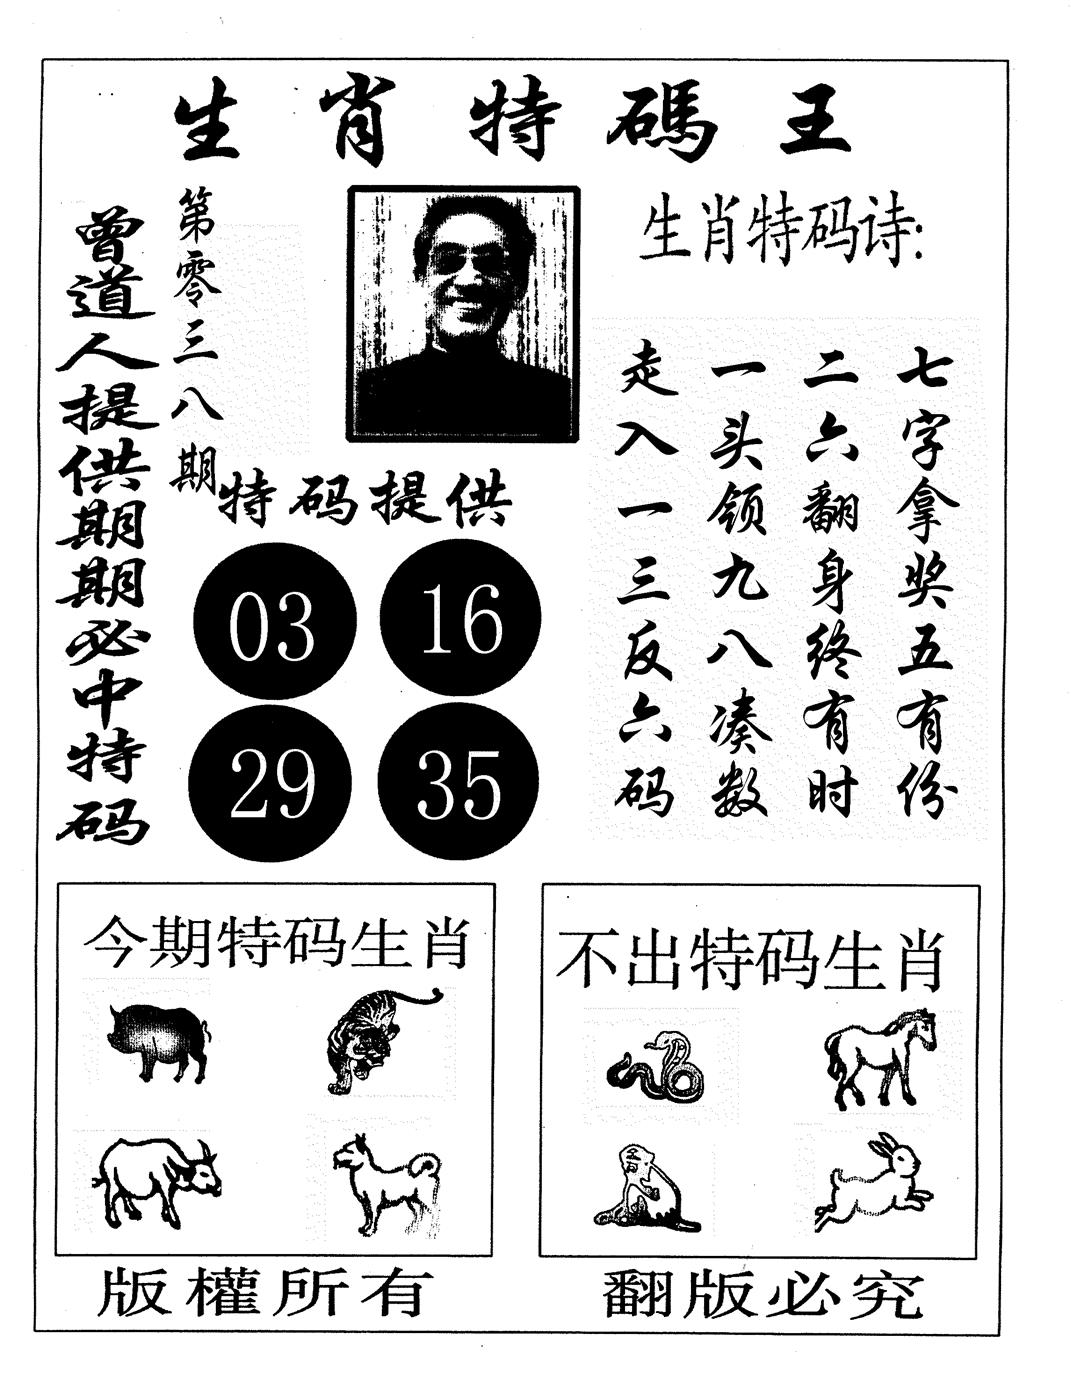 生肖特碼王
曾道人提供期期必中特码
第零三八期
生肖特码诗:
七字拿奖五有份
二六翻身终有时
一头领九八凑数
走入一三反六码
特码提供
03 16
29 35
今期特码生肖
不出特码生肖
版權所有
翻版必究